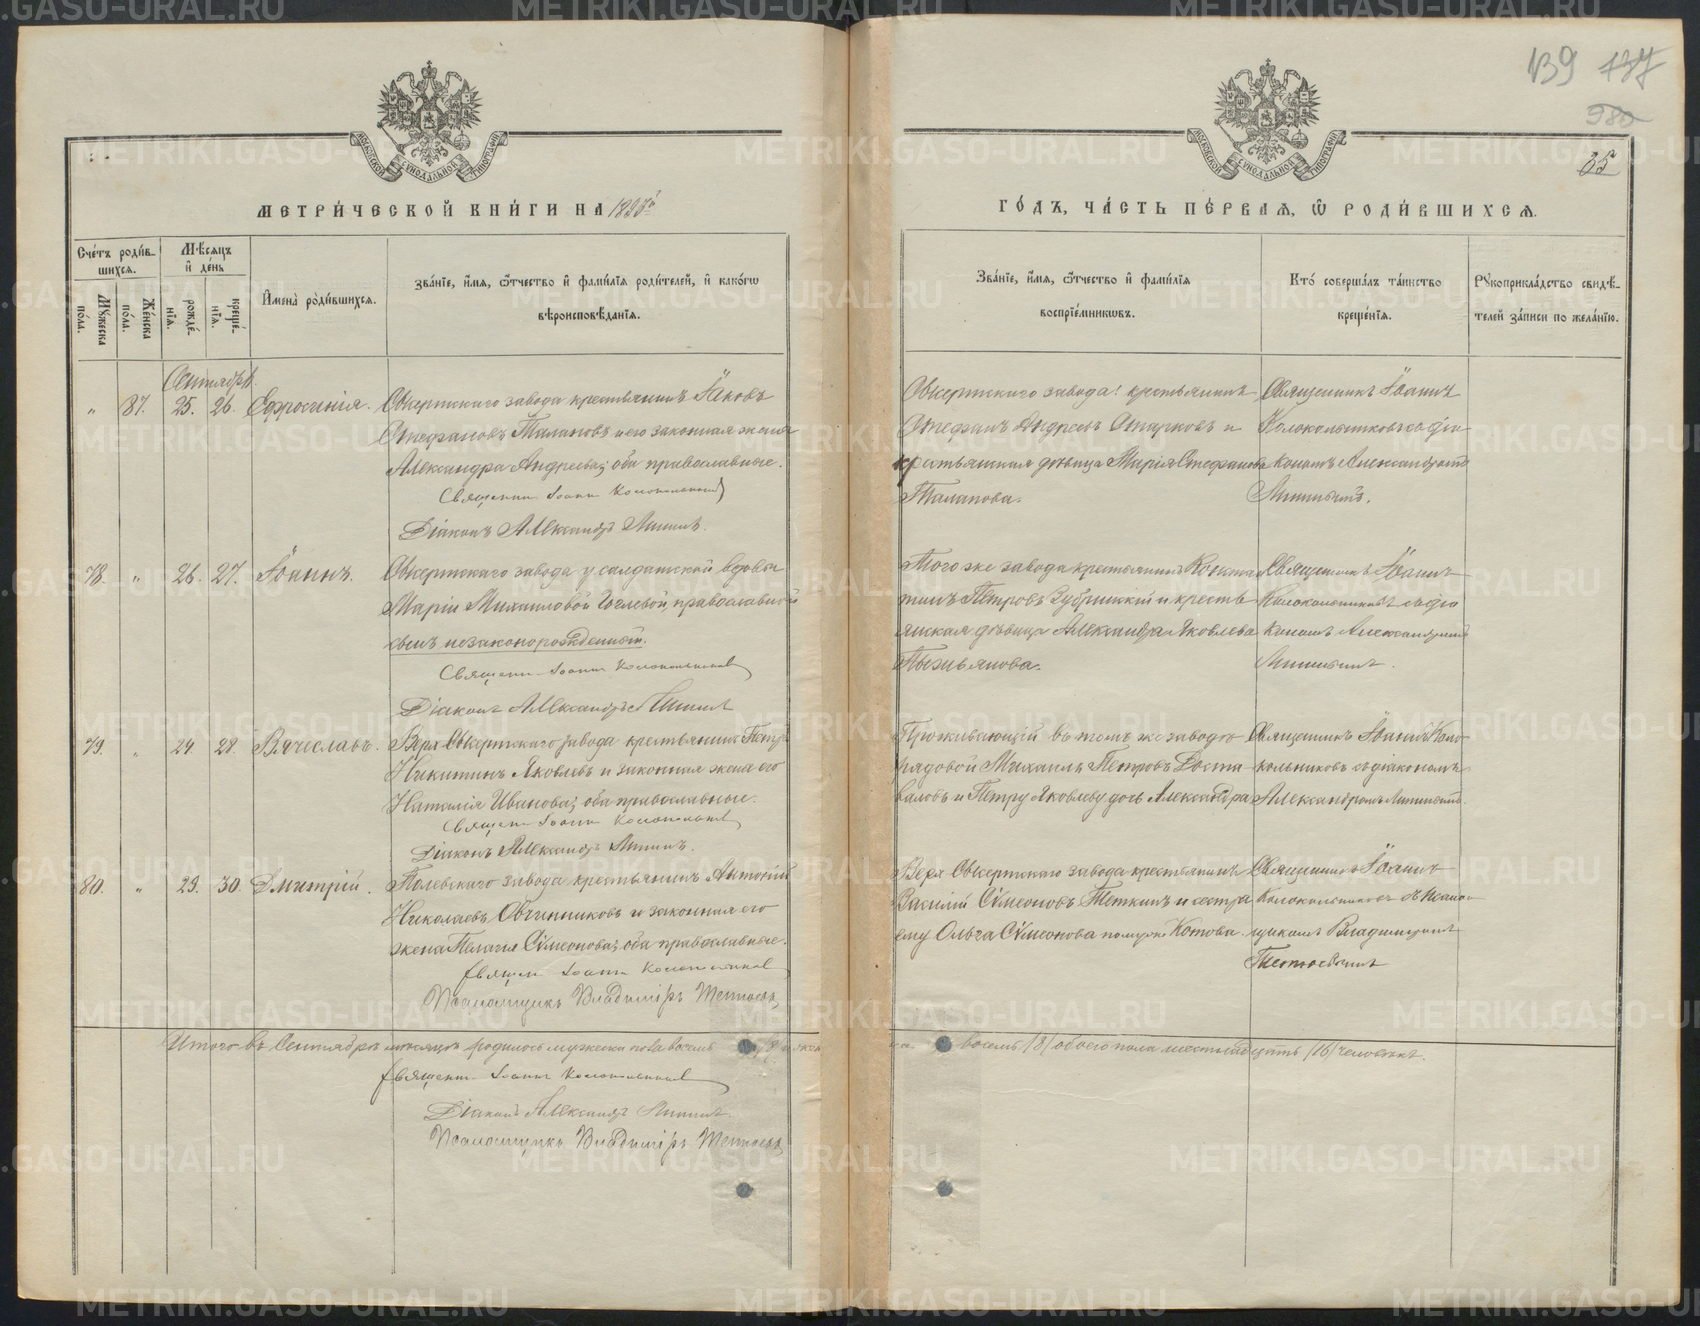 139 137
980
35
МОСКОВСКОЙ СѴНОДАЛЬНОЙ ТИПОГРАФІИ
МОСКОВСКОЙ СѴНОДАЛЬНОЙ ТИПОГРАФІИ
МЕТРИ́ЧЕСКОЙ КНИ́ГИ НА
ГО́ДЪ, ЧА́СТЬ ПЕ́РВАЯ, Ѡ҆ РОДИ́ВШИХСЯ.
Сче́тъ роди́вшихся.
Мѣ́сяцъ и҆ де́нь
Мꙋ́жеска по́ла.
Же́нска по́ла.
рожде́нїя.
креще́нїя.
И҆мена̀ роди́вшихся.
Зва́нїе, и҆́мя, ѻ҆́тчество и҆ фами́лїя роди́телей, и҆ како́гѡ
вѣроисповѣ́данїя.
Зва́нїе, и҆́мя, ѻ҆́тчество и҆ фами́лїя
воспрїе́мникѡвъ.
Кто́ соверша́лъ та́инство
креще́нїя.
Рꙋкоприкла́дство свидѣ́-
телей за́писи по жела́нїю.
Сентябрь
" 87. 25. 26. Ефросинія.
Сысертскаго завода крестьянинъ Іаковъ
Стефановъ Талановъ и его законная жена
Александра Андреева; оба православные.
Священникъ Іоаннъ Колокольниковъ
Діаконъ Александръ Мининъ.
Сысертскаго завода: крестьянинъ
Стефанъ Андреевъ Старковъ и
крестьянская дѣвица Марія Стефанова
Таланова.
Священникъ Іоаннъ
Колокольниковъ съ діа-
кономъ Александромъ
Мининымъ.
78. " 26. 27. Іоаннъ.
Сысертскаго завода у солдатской вдовы
Маріи Михаиловой православной
сынъ незаконорожденный.
Священникъ Іоаннъ Колокольниковъ
Діаконъ Александръ Мининъ
Того же завода крестьянинъ Констан
тинъ Петровъ Зубрицкій и кресть
янская дѣвица Александра Яковлева
Пызьянова.
Священникъ Іоаннъ
Колокольниковъ съ діа
кономъ Александромъ
Мининымъ.
79. " 24. 28. Вячеславъ.
Верх Сысертскаго завода крестьянинъ Петръ
Никитинъ Яковлевъ и законная жена его
Наталія Иванова; оба православные.
Священникъ Іоаннъ Колокольниковъ
Діаконъ Александръ Мининъ.
Проживающій въ томъ же заводѣ
рядовой Михаилъ Петровъ Доста
валовъ и Петру Яковлеву дочь Александра
Священникъ Іоаннъ Коло
кольниковъ съ діакономъ
Александромъ Мининымъ.
80. " 29. 30. Дмитрій.
Полевскаго завода крестьянинъ Антоній
Николаевъ Овчинниковъ и законная его
жена Пелагія Сѵмеонова; оба православные.
Священникъ Іоаннъ Колокольниковъ
Псаломщикъ Владиміръ
Верх Сысертскаго завода крестьянинъ
Василій Сѵмеоновъ Теткинъ и сестра
ему Ольга Сѵмеонова по мужу Котова.
Священникъ Іоаннъ
Колокольниковъ съ Псалом
щикомъ Владиміромъ
Итого въ Сентябрѣ мѣсяцѣ родилось мужеска пола восемь
восемь /8/ обоего пола шестнадцать /16/ человѣкъ.
Священникъ Іоаннъ Колокольниковъ
Діаконъ Александръ Мининъ.
Псаломщикъ Владиміръ
METRIKI.GASO-URAL.RU